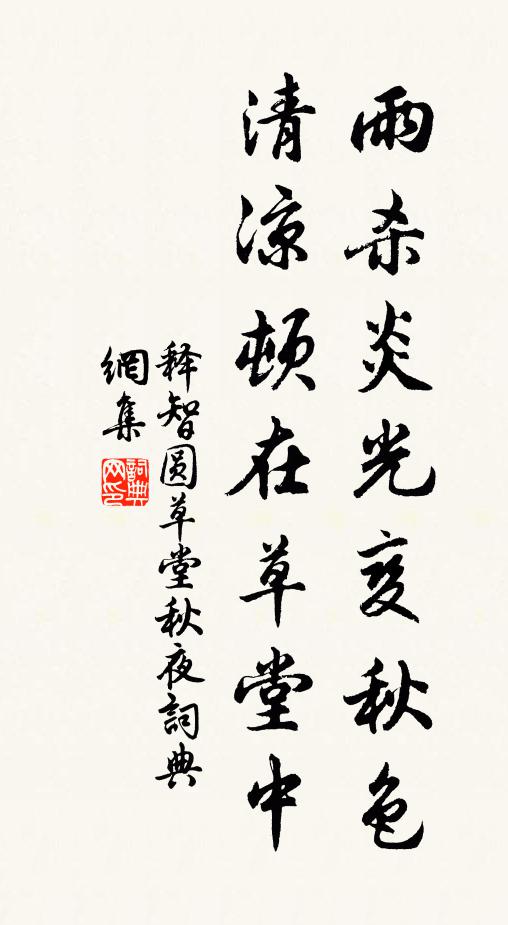 雨杀炎光变秋色
清凉顿在草堂中
释智圆草堂秋夜詞典
網集
詞典网印